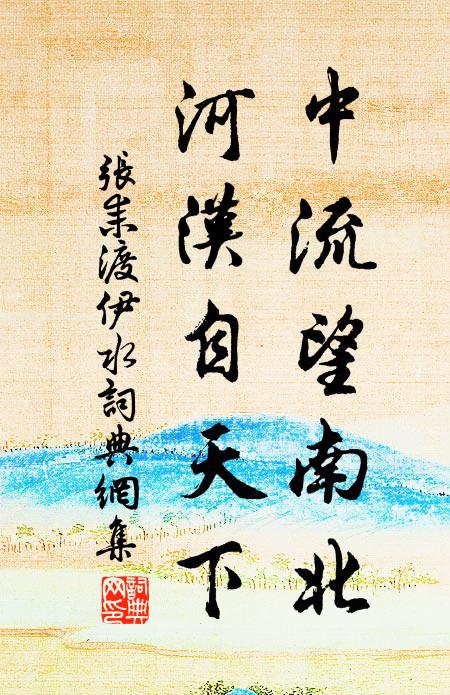 中流望南北
河漢自天下
張耒渡伊水詞典網集